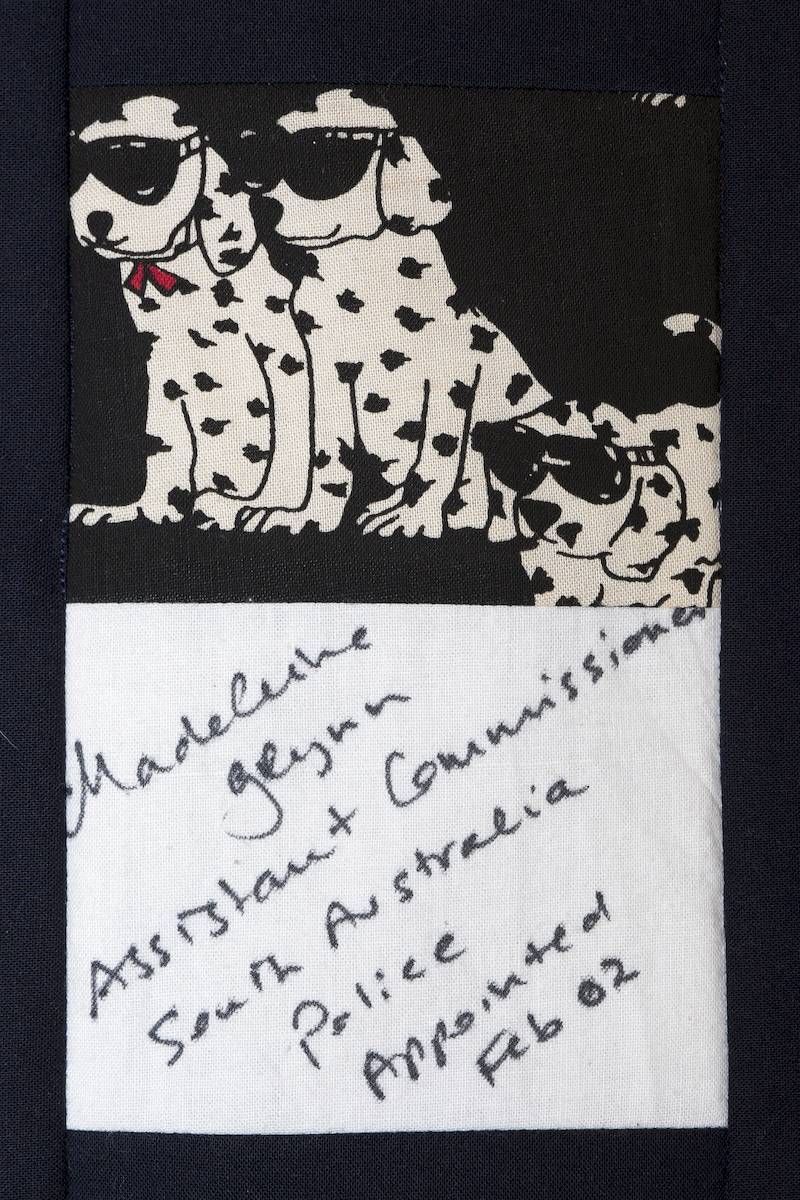 Madeleine
Glynn
Assistant Commissioner
South Australia
Police
Appointed
Feb 02